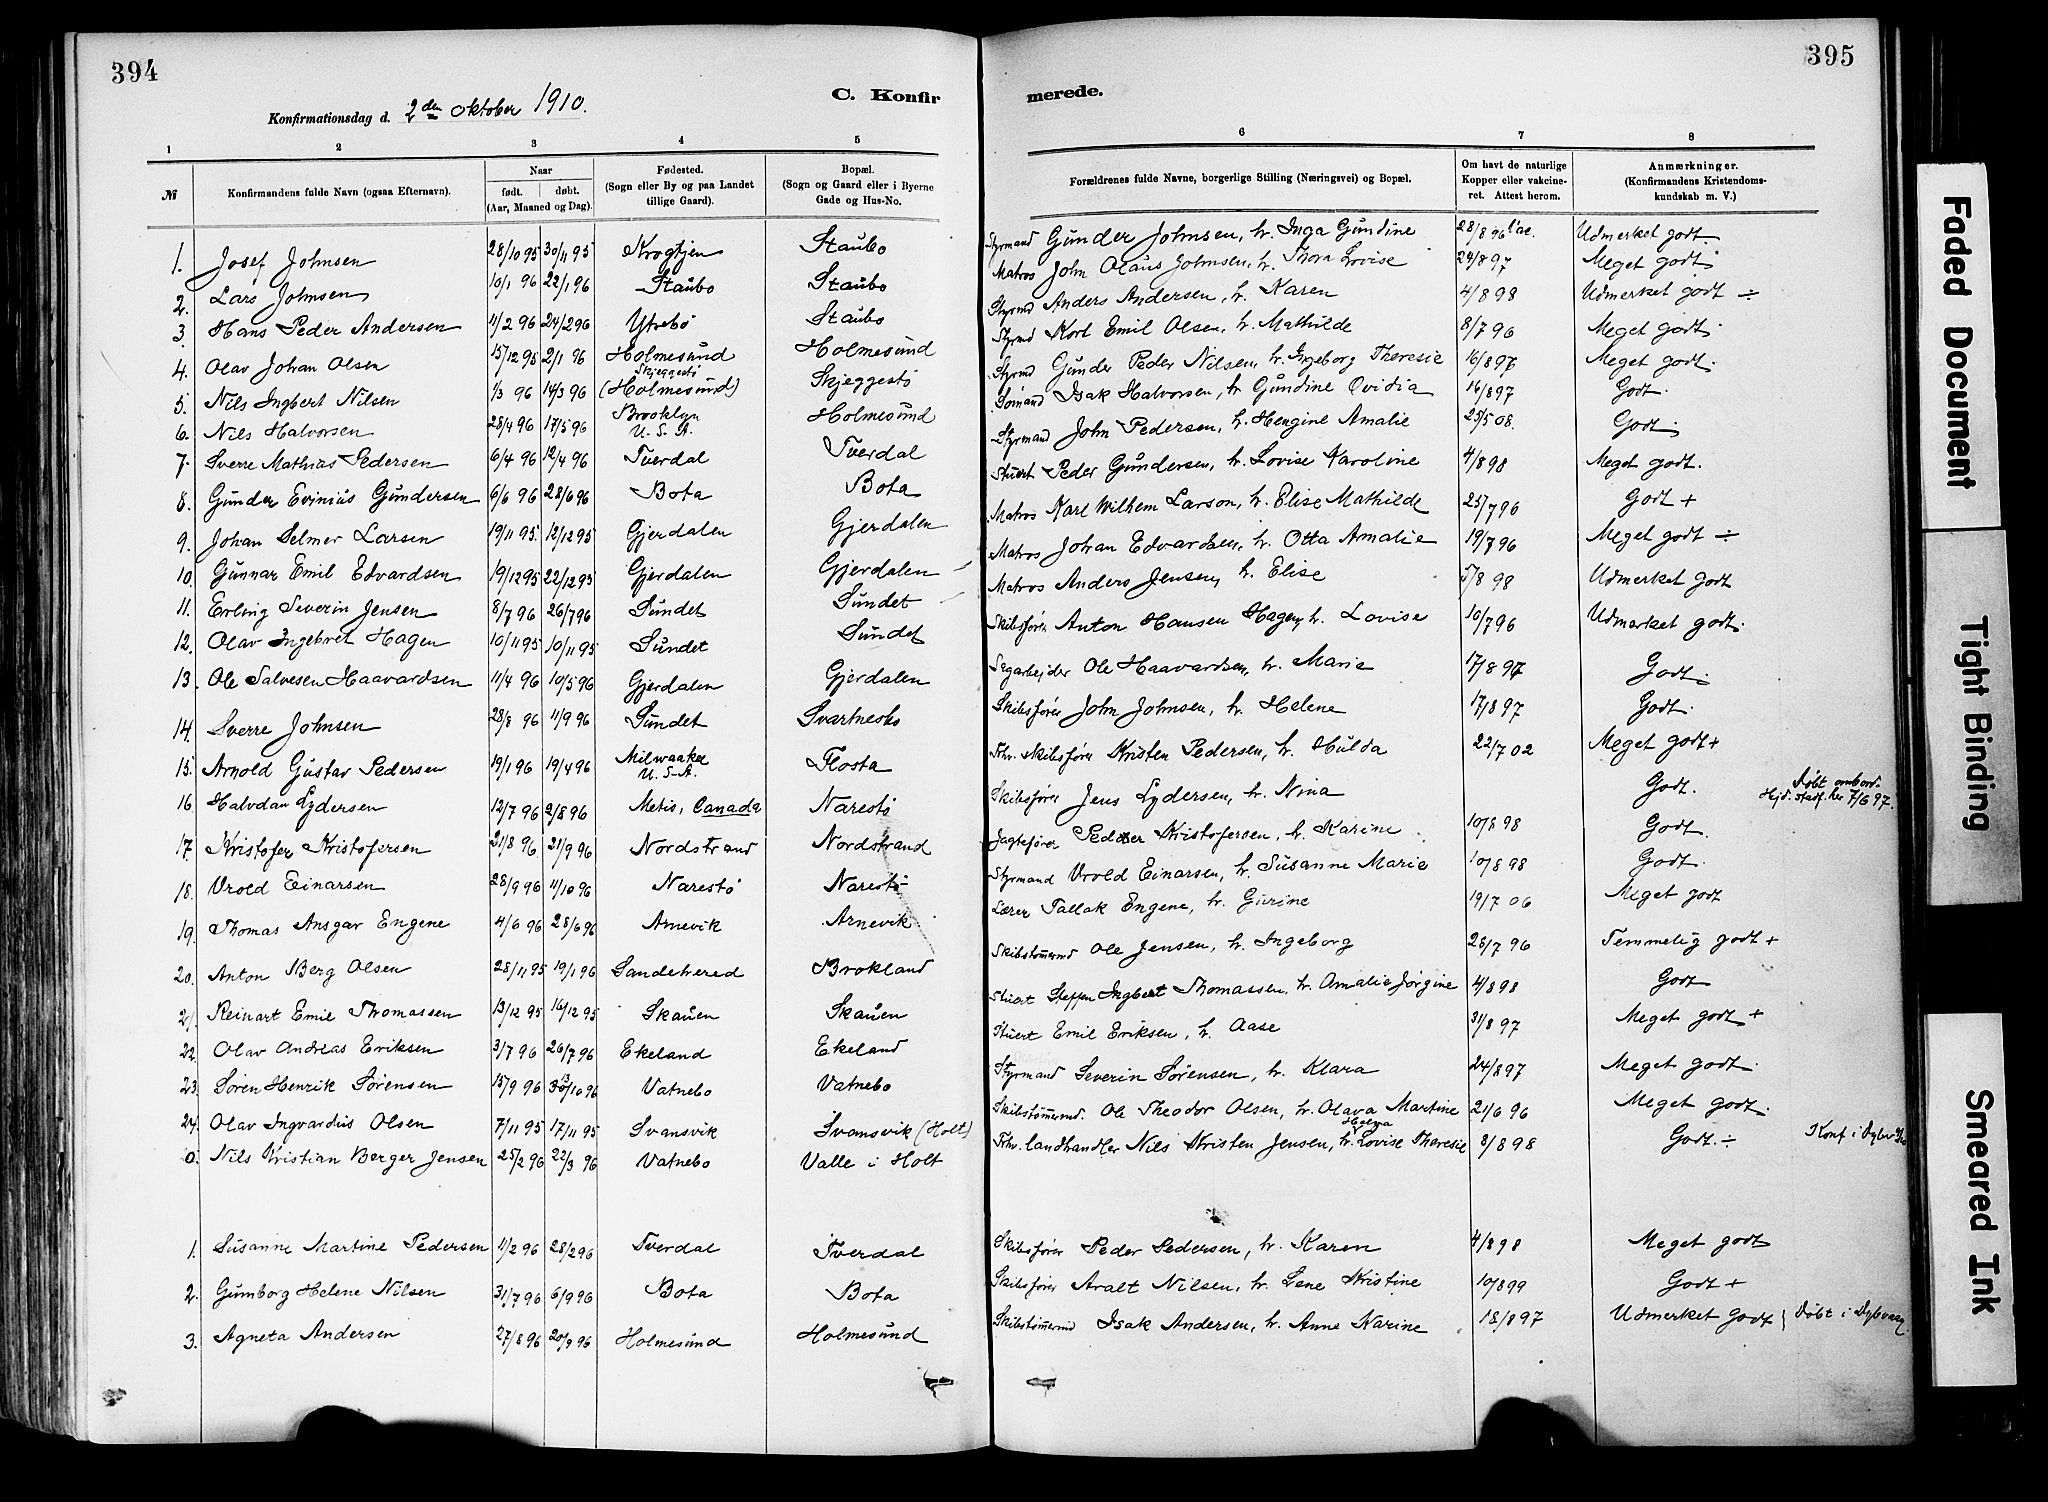 394
395
Konfirmationsdag d. 2den Oktober 1910.
C. Konfirmerede.
1 2 3 4 5 6 7 8
№ | Konfirmandens fulde Navn (ogsaa Efternavn). | Naar født. døbt. (Aar, Maaned og Dag). | Fødested. (Sogn eller By og paa Landet tillige Gaard). | Bopæl. (Sogn og Gaard eller i Byerne Gade og Hus-No. | Forældrenes fulde Navne, borgerlige Stilling (Næringsvei) og Bopæl. | Om havt de naturlige Kopper eller vakcineret. Attest herom. | Anmærkninger. (Konfirmandens Kristendomskundskab m. V.)
1. Josef Johnsen 28/10 95 30/11 95 Krogtjen Staubo Styrmand Gunder Johnsen, h. Inga Gundine 28/8 96 Udmerket godt.
2. Lars Johnsen 10/1 96 22/1 96 Staubo Staubo Matros John Olaus Johnsen, h. Thora Lovise 24/8 97 Meget godt
3. Hans Peder Andersen 11/2 96 24/2 96 Ytrebø Staubo Styrmd Anders Andersen, h. Karen 4/8 98 Udmerket godt ÷
4. Olav Johan Olsen 15/12 95 2/1 96 Holmesund Holmesund Styrmd Korl Emil Olsen, h. Mathilde 8/7 96 Meget godt.
5. Nils Ingbert Nilsen 1/3 96 14/3 96 Skjeggestø (Holmesund) Skjeggestø Styrmd Gunder Peder Nilsen, h. Ingeborg Theresie 16/8 97 Meget godt.
6. Nils Halvorsen 28/4 96 17/5 96 Brooklyn U. S. A. Holmesund Sømand Isak Halvorsen, h. Gundine Ovidia 16/8 97 Godt.
7. Sverre Mathias Pedersen 6/4 96 12/4 96 Tverdal Tverdal Styrmand John Pedersen, h. Hengine Amalie 25/5 08. Godt.
8. Gunder Evinius Gundersen 6/6 96 28/6 96 Bota Bota Stuert Peder Gundersen, h. Lovise Karoline 4/8 98 Meget godt.
9. Johan Selmer Larsen 19/11 95. 12/12 95 Gjerdalen Gjerdalen Matros Karl Wilhem Larson, h. Elise Mathilde 25/7 96 Godt +
10. Gunnar Emil Edvardsen 19/12 95 22/12 95 Gjerdalen Gjerdalen Matros Johan Edvardsen, h. Otta Amalie 19/7 96 Meget godt ÷
11. Erling Severin Jensen 8/7 96 26/7 96 Sundet Sundet Matros Anders Jensen, h. Elise 5/8 98 Udmerket godt
12. Olav Ingebret Hagen 10/11 95 10/11 95 Sundet Sundet Skibsfører Anton Hansen Hagen, h. Lovise 10/7 96 Udmerket godt.
13. Ole Salvesen Haavardsen 11/4 96 10/5 96 Gjerdalen Gjerdalen Sagarbejder Ole Haavardsen, h. Marie 17/8 97 Godt.
14. Sverre Johnsen 28/8 96 11/9 96 Sundet Svartnesks Skibsfører John Johnsen, h. Helene 17/8 97 Godt.
15. Arnold Gustav Pedersen 19/1 96 19/4 96 Milwaakee U. S. A. Flosta Fhv. skibsfører Kristen Pedersen, h. Hulda 22/7 02 Meget godt +
16 Halvdan Lydersen 12/7 96 2/8 96 Metis, Canada Narestø Skibsfører Jens Lydersen, h. Nina Godt. Døbt ombord. Hjd. stadf. her 7/6 97.
17. Kristofer Kristofersen 21/8 96 21/9 96 Nordstrand Nordstrand Jagtefører Peder Kristofersen, h. Karine 10/8 98 Godt.
18. Vrold Einarsen 28/9 96 11/10 96 Narestø Narestø Styrmand Vrold Einarsen, h. Susanne Marie 10/8 98 Godt.
19. Thomas Ansgar Engene 4/6 96 28/6 96 Arnevik Arnevik Lærer Tallak Engene, h. Gurine 19/7 06 Meget godt
20. Anton Berg Olsen 28/11 95 19/1 96 Sandehered Brokland Skibstømermd Ole Jensen, h. Ingeborg 28/7 96 Temmelig godt +
21. Reinart Emil Thomassen 13/12 95 16/12 95 Skauen Skauen Stuert Steffen Ingbert Thomassen, h. Amalie Jørgine 4/8 98 Godt
22. Olav Andreas Eriksen 3/7 96 26/7 96 Ekeland Ekeland Stuert Emil Eriksen, h. Aase 31/8 97 Meget godt +
23. Søren Henrik Sørensen 15/9 96 13/10 96 Vatnebo Vatnebo Styrmand Severin Sørensen, h. Klara 24/8 97 Meget godt.
24. Olav Ingvardius Olsen 7/11 95 17/11 95 Svansvik Svansvik (Holt) Skibstømermd. Ole Theodor Olsen, h. Olava Martine 21/6 96 Meget godt.
0. Nils Kristian Berger Jensen 25/2 96 22/3 96 Vatnebo Valle i Holt Fhv. landhandler Nils Kristen Jensen, h. Helga Lovise Theresie 3/8 98 Godt. ÷ Konf i Dybv
1. Susanne Martine Pedersen 11/2 96 28/2 96 Tverdal Tverdal Skibsfører Peder Pedersen, h. Karen 4/8 98 Meget godt
2. Gunborg Helene Nilsen 31/7 96 6/9 96 Bota Bota Skibsfører Aralt Nilsen, h. Lene Kristine 10/8 99 Godt +
3. Agneta Andersen 27/8 96 20/9 96 Holmesund Holmesund Skibstømermd Isak Andersen, h. Anne Karine 18/8 97 Udmerket godt Døbt i Dybvaag.
Faded Document
Tight Binding
Smeared Ink